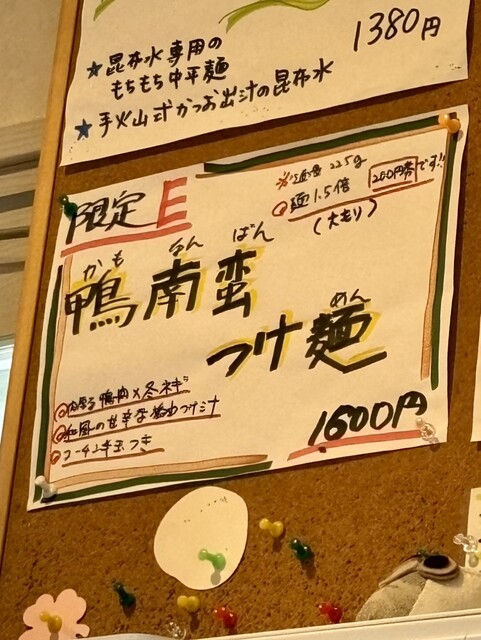 1380円
★昆布水専用の
もちもち中平麺
★手火山式かつお出汁の昆布水
限定E
※普通 225g
麺1.5倍 200円券です!!
(大もり)
かも なん ばん
鴨南蛮
めん
つけ麺
◎肉厚鴨肉×冬ネギ
◎和風の甘辛な醤油つけ汁
◎コーチン味玉つき
1600円